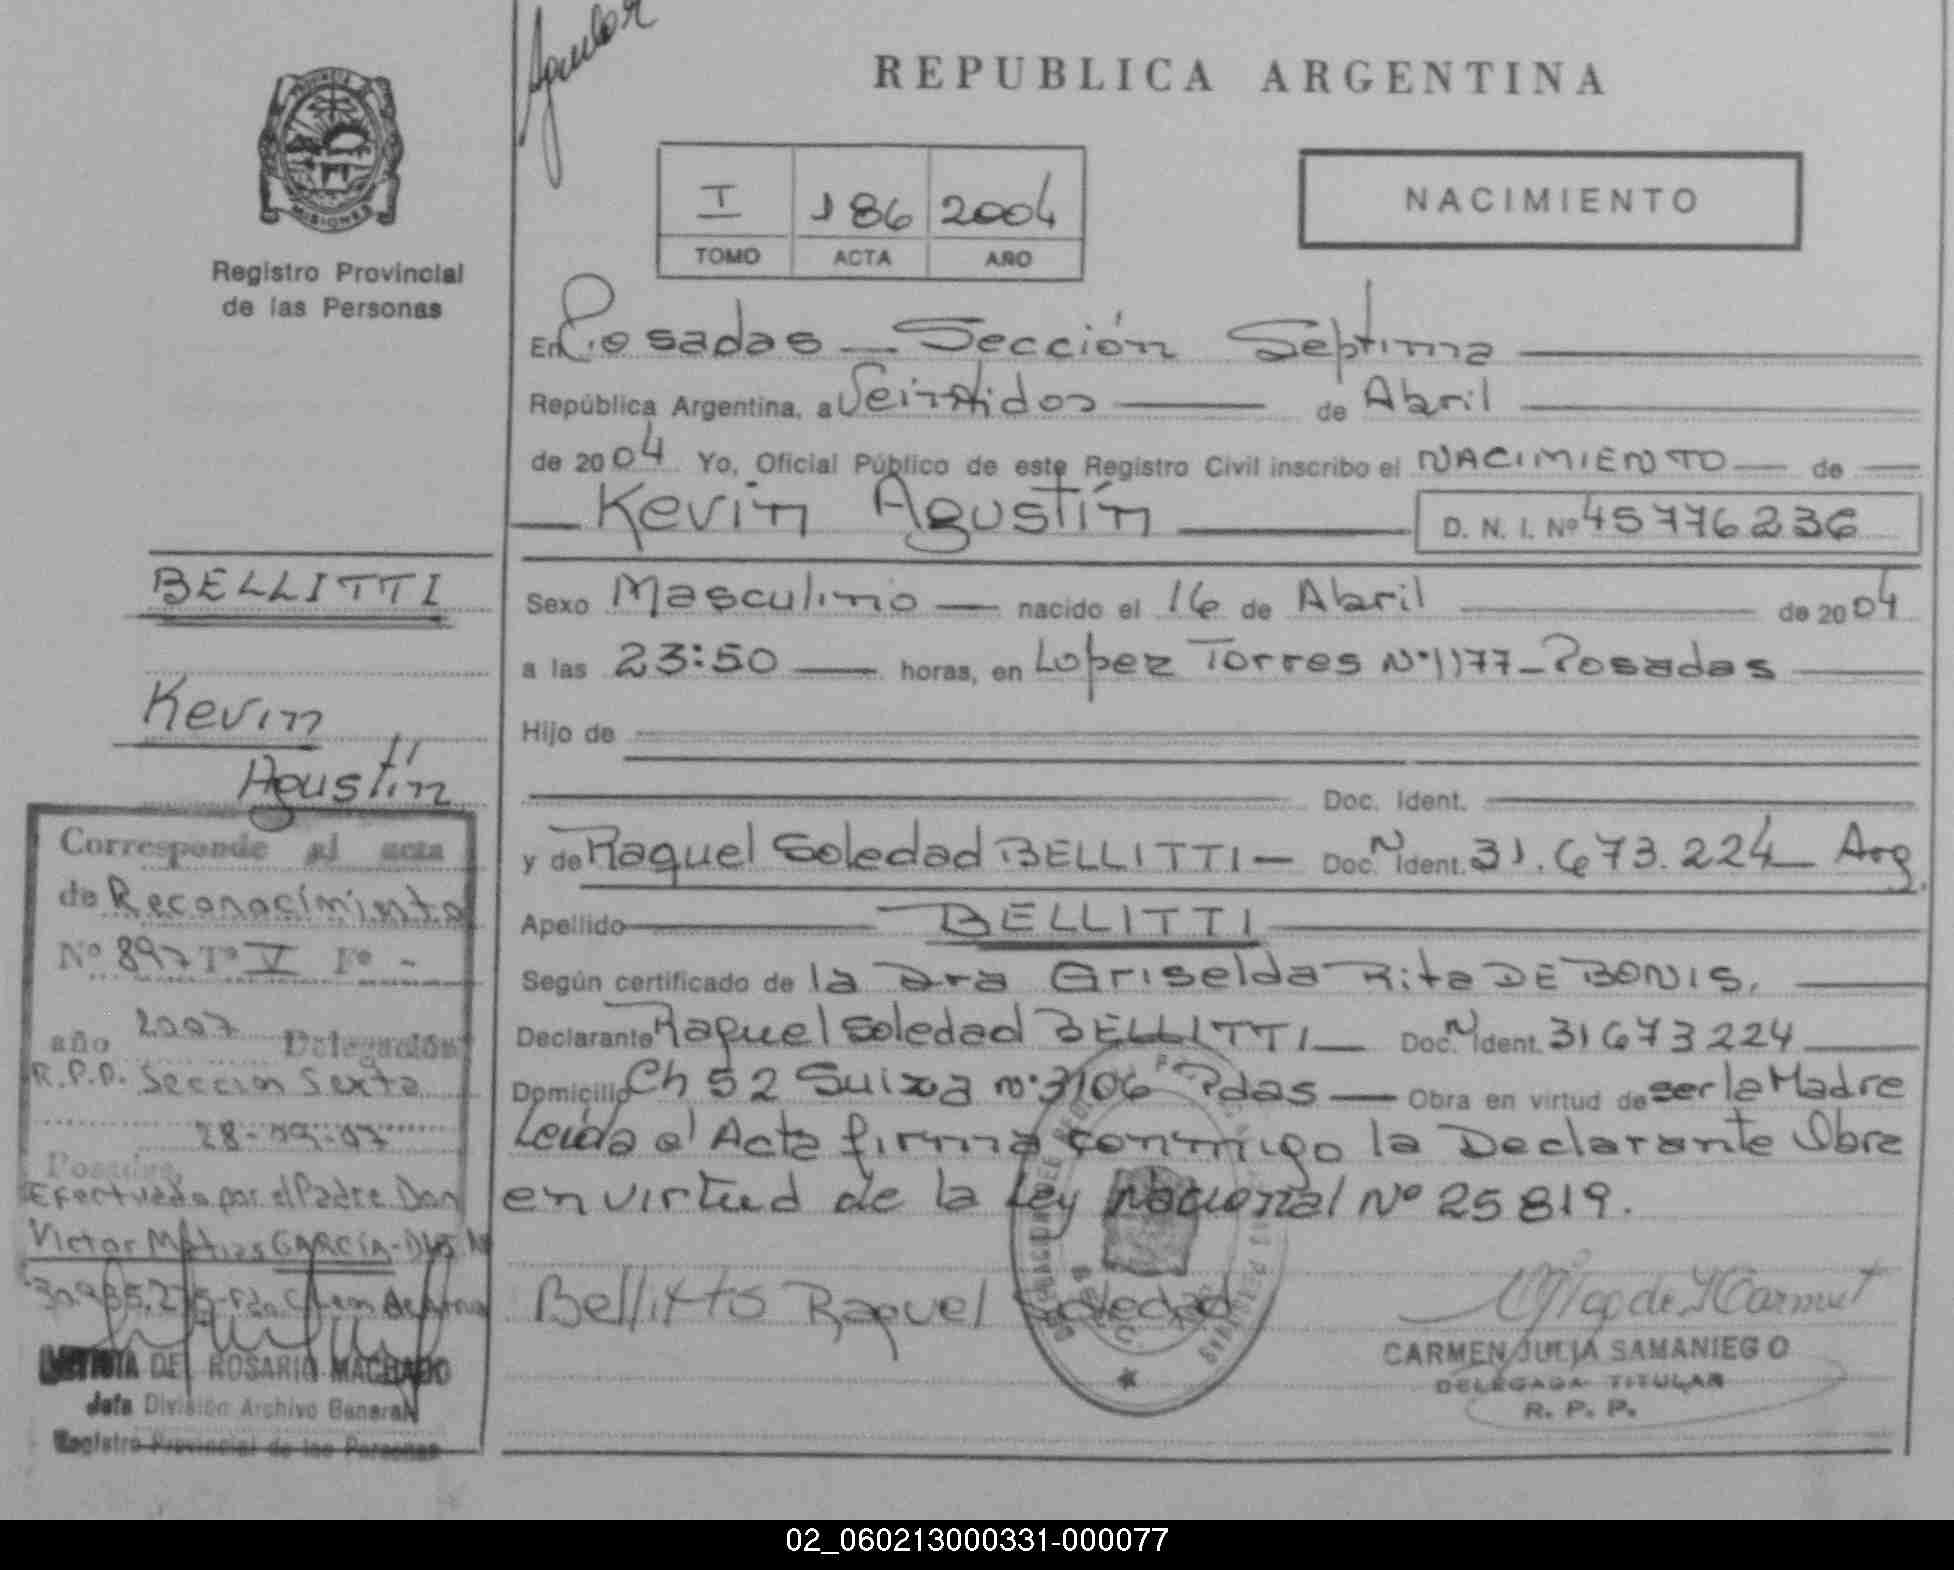 Aguilar
REPUBLICA ARGENTINA
PROVINCIA
MISIONES
Registro Provincial
de las Personas
I 186 2004
TOMO ACTA AÑO
NACIMIENTO
En Posadas - Sección Septima
República Argentina, a Veintidos de Abril
de 2004 Yo, Oficial Público de este Registro Civil inscribo el NACIMIENTO de
Kevin Agustín D. N. I. Nº 45776236
Sexo Masculino nacido el 16 de Abril de 2004
a las 23:50 horas, en Lopez Torres Nº 1177 - Posadas
Hijo de
Doc. Ident.
y de Raquel Soledad BELLITTI - Doc. N Ident. 31.673.224 Arg.
Apellido BELLITTI
Según certificado de la Dra Griselda Rita DE BONIS.
Declarante Raquel Soledad BELLITTI Doc. N Ident. 31673224
Domicilio Ch 52 Suiza nº 3106 Pdas Obra en virtud de ser la Madre
Leida el Acta firma conmigo la Declarante Obra
en virtud de la Ley Nacional Nº 25819.
Raquel Soledad
CARMEN JULIA SAMANIEGO
DELEGADA TITULAR
R. P. P.
BELLITTI
Kevin
Agustín
Corresponde al acta
de Reconocimiento
Nº 897 Tº V Fº -
año 2007 Delegación
R.P.P. Seccion Sexta
28-09-07
Posadas,
Efectuado por el Padre Don
Victor Matias GARCIA - DNI Nº
DEL ROSARIO MACHADO
Jefa División Archivo General
Registro Provincial de las Personas
02_060213000331-000077